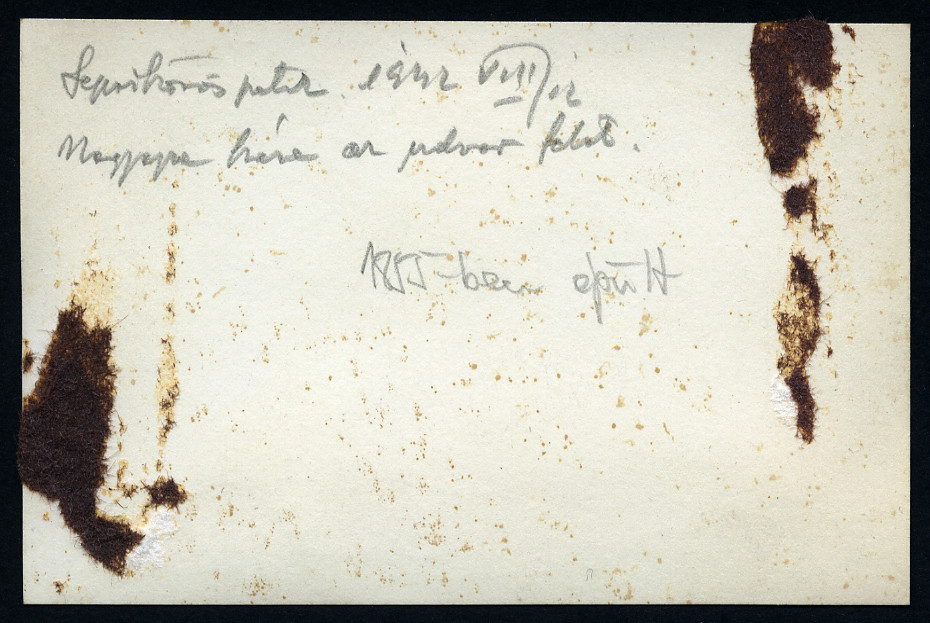 Sepsikőröspatak. 1942 VIII/12
Nagyapa háza az udvar felől.
1855-ben épült